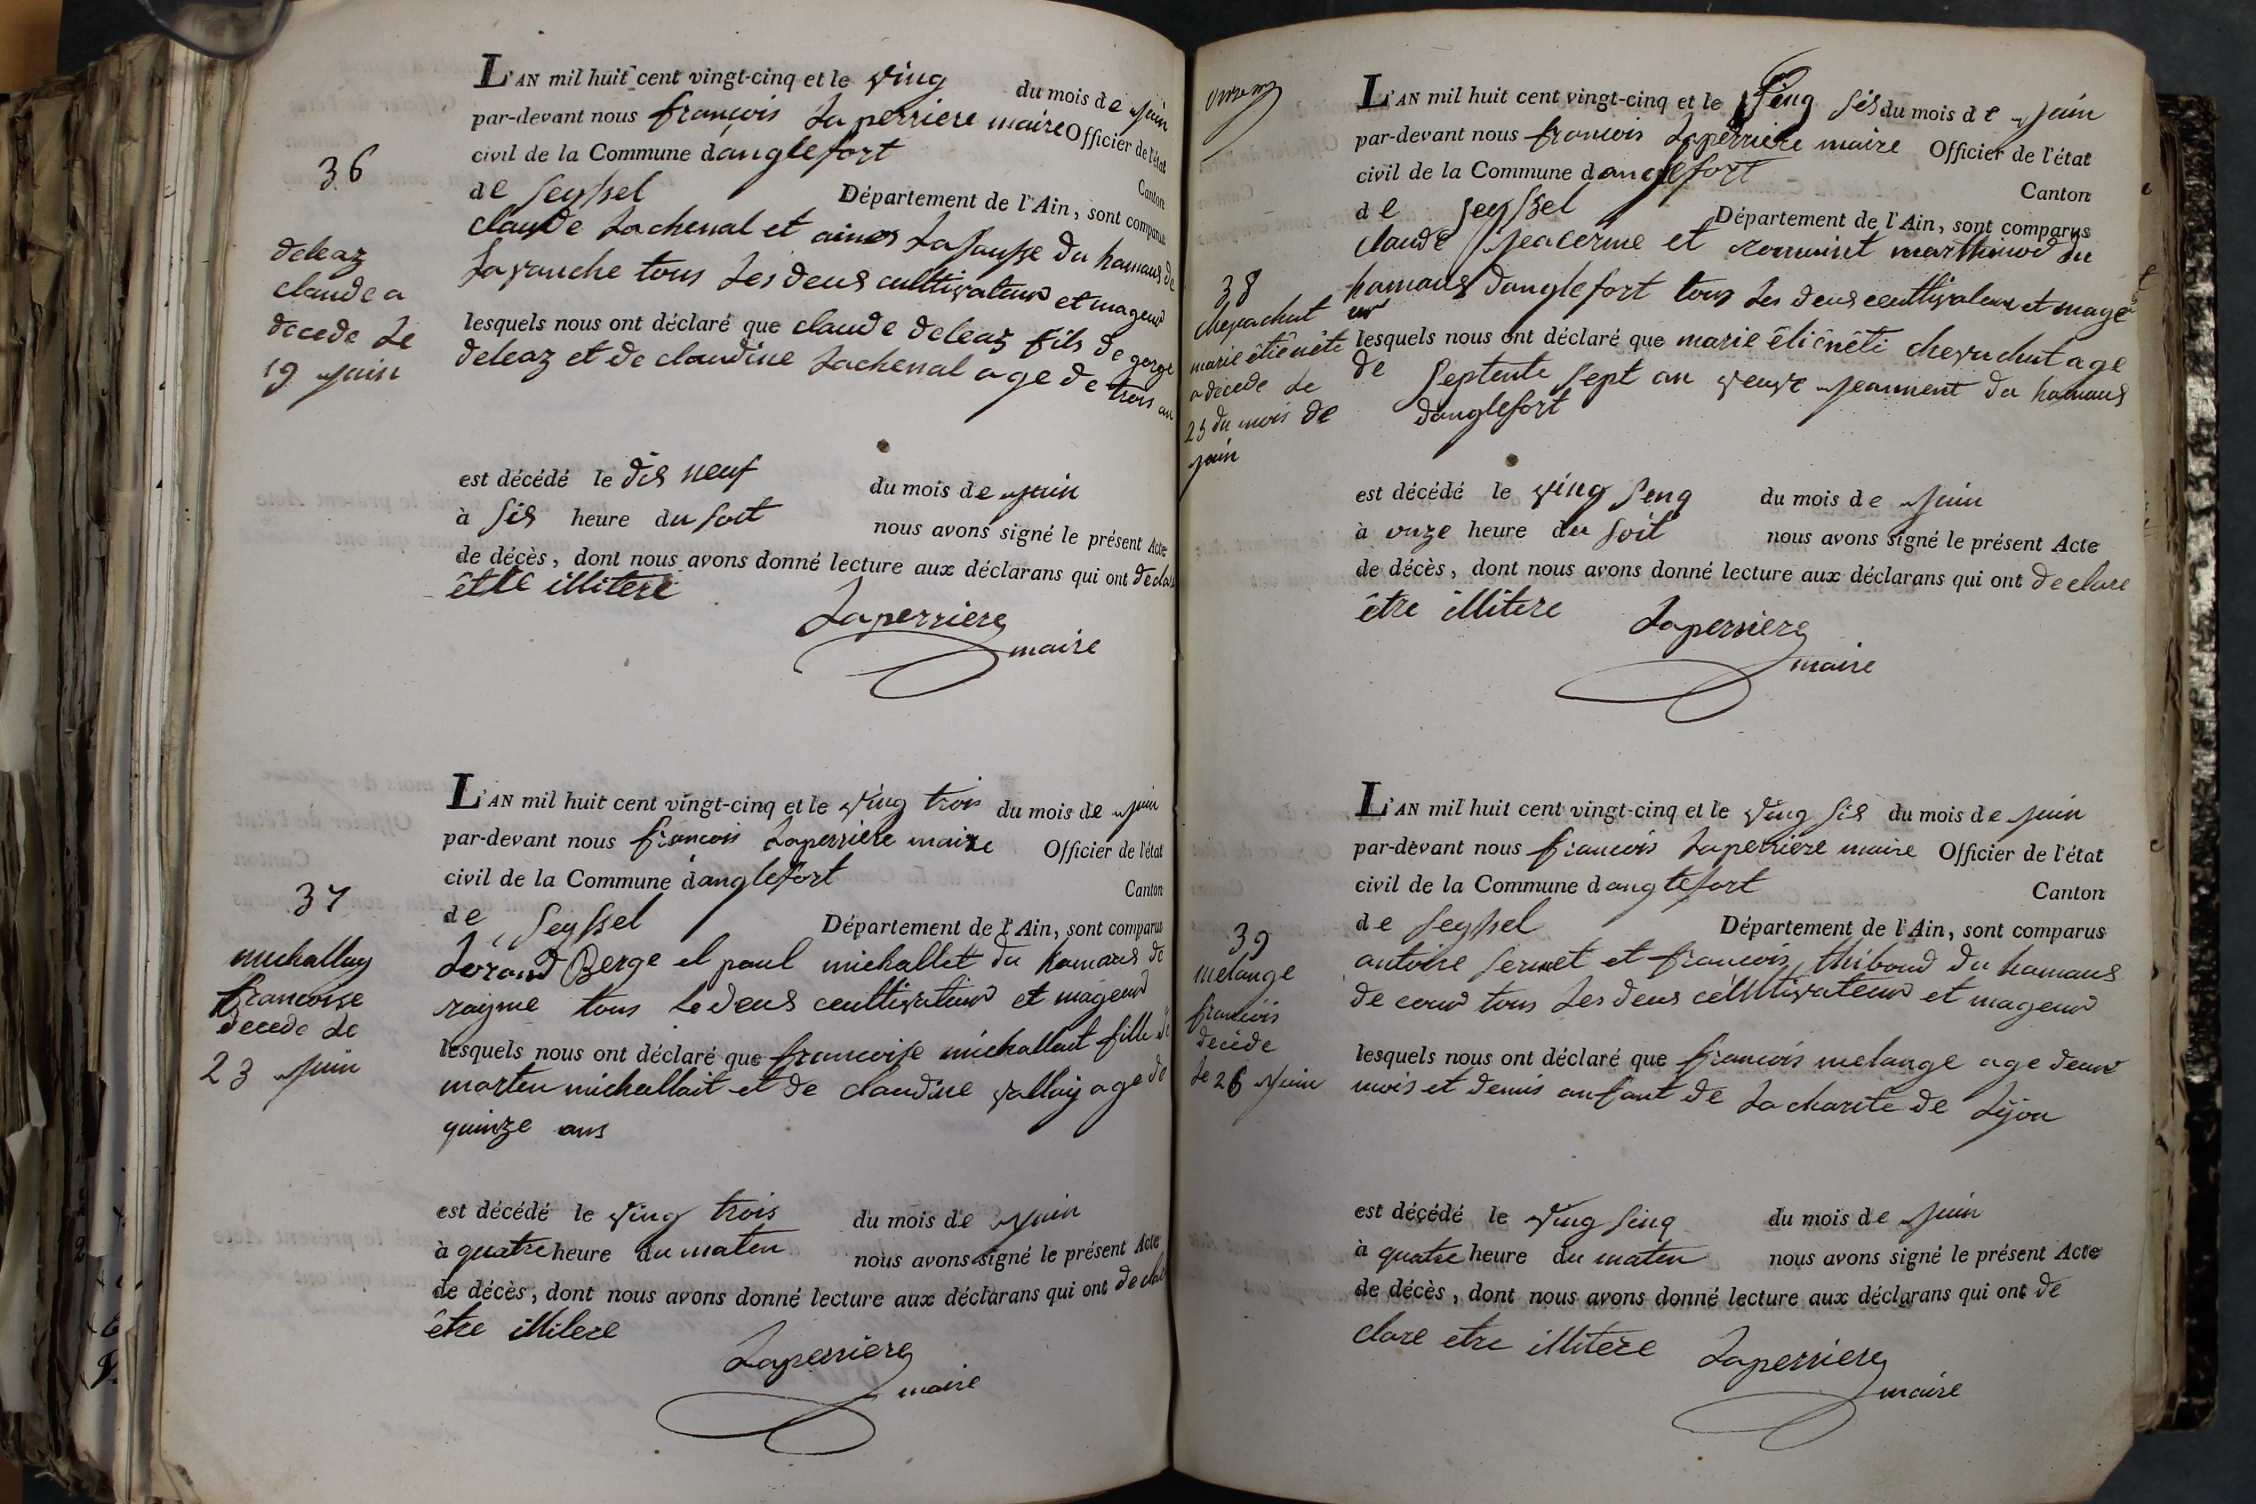 36
deleaz
claude a
decede Le
19 juin
L'AN mil huit cent vingt-cinq et le ving du mois de juin
par-devant nous françois Laperriere maire Officier de l'état
civil de la Commune danglefort Canton
de Seyssel Département de l'Ain, sont comparus
claude Lachenal et aimes Lasausse du hamaus de
Lavanche tous Les deus cultivateur et mageur
lesquels nous ont déclaré que claude deleaz fils de gorge
deleaz et de claudine Lachenal age de trois an
est décédé le dis neuf du mois de juin
à sis heure du soit nous avons signé le présent Acte
de décès, dont nous avons donné lecture aux déclarans qui ont declare
être illitere
Laperriere
maire
37
michallay
francoise
decede Le
23 juin
L'AN mil huit cent vingt-cinq et le ving trois du mois de juin
par-devant nous francois Laperriere maire Officier de l'état
civil de la Commune danglefort Canton
de Seyssel Département de l'Ain, sont comparus
Berge et paul michallet du hamaus de
rayme tous Le deus cultivateur et mageur
lesquels nous ont déclaré que francoise michallait fille de
marten michallait et de claudine vallay age de
quinze ans
est décédé le ving trois du mois de juin
à quatre heure du maten nous avons signé le présent Acte
de décès, dont nous avons donné lecture aux déclarans qui ont declare
être illitere
Laperriere
maire
38
chevachut
marie êtiênête
a decede Le
25 du mois de
juin
L'AN mil huit cent vingt-cinq et le ving sis du mois de juin
par-devant nous francois Laperriere maire Officier de l'état
civil de la Commune danglefort Canton
de Seyssel Département de l'Ain, sont comparus
claude et marthinod du
hamaus danglefort tous Les deus ceultivateur et mage
ur
lesquels nous ont déclaré que marie êtiênêti chevachut age
de septente sept an veuve jeannent du hamaus
danglefort
est décédé le ving senq du mois de juin
à onze heure du soit nous avons signé le présent Acte
de décès, dont nous avons donné lecture aux déclarans qui ont declare
être illitere
Laperriere
maire
39
melange
francois
decede
Le 26 juin
L'AN mil huit cent vingt-cinq et le ving sis du mois de juin
par-devant nous francois Laperriere maire Officier de l'état
civil de la Commune danglefort Canton
de Seyssel Département de l'Ain, sont comparus
antoine sermet et francois thiboud du hamaus
de cour tous Les deus ceultivateur et mageur
lesquels nous ont déclaré que francois melange age deun
mois et demis anfant de La charite de Lyon
est décédé le ving sinq du mois de juin
à quatre heure du maten nous avons signé le présent Acte
de décès, dont nous avons donné lecture aux déclarans qui ont de
clare etre illitere
Laperriere
maire